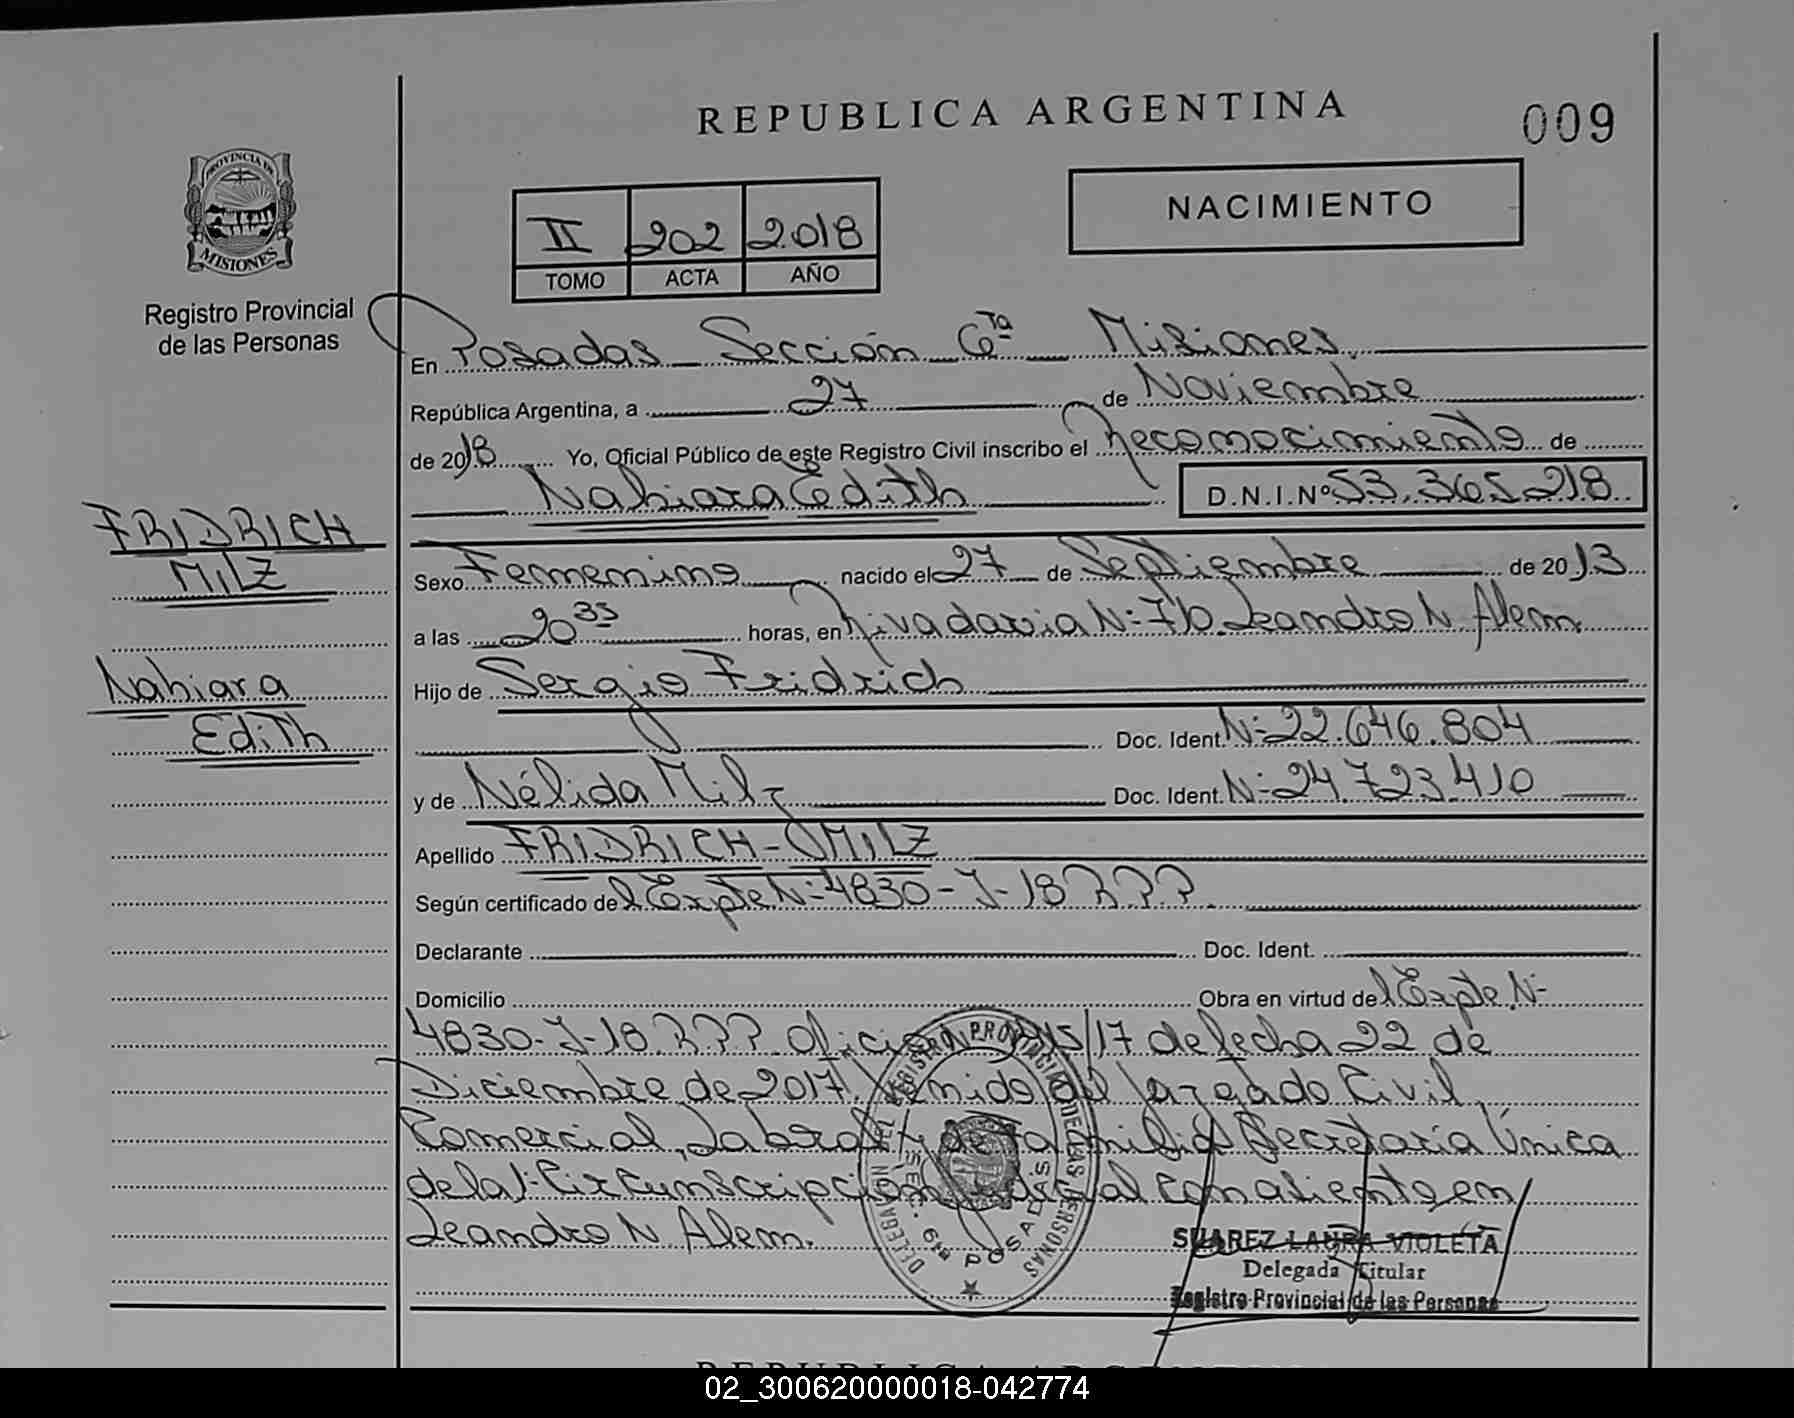 REPUBLICA ARGENTINA
009
PROVINCIA DE
MISIONES
Registro Provincial
de las Personas
NACIMIENTO
II 202 2.018
TOMO ACTA AÑO
En Posadas Sección 6ta Misiones,
República Argentina, a 27 de Noviembre
de 2018 Yo, Oficial Público de este Registro Civil inscribo el Reconocimiento de
Nahiara Edith D.N.I.Nº 53.365.218
FRIDRICH
MILZ
Nahiara
Edith
Sexo Femenino nacido el 27 de Septiembre de 2013
a las 20 35 horas, en Rivadavia N: 710. Leandro N. Alem
Hijo de Sergio Fridrich
Doc. Ident. N: 22.646.804
y de Nélida Milz Doc. Ident. N: 24.723.410
Apellido FRIDRICH - MILZ
Según certificado del Expte N: 4830-J-18 R.P.P.
Declarante Doc. Ident.
Domicilio Obra en virtud del Expte N:
4830-J-18 R.P.P. Oficio /17 de fecha 22 de
Diciembre de 2017. Venido del Juzgado Civil,
Comercial, Laboral y de Familia Secretaría Única
de la 1: Circunscripción Judicial con asiento en
Leandro N. Alem.
DELEGACION DEL REGISTRO PROVINCIAL DE LAS PERSONAS
SEC. 6ta POSADAS
SUAREZ LAURA VIOLETA
Delegada Titular
Registro Provincial de las Personas
REPUBLICA ARGENTINA
02_300620000018-042774